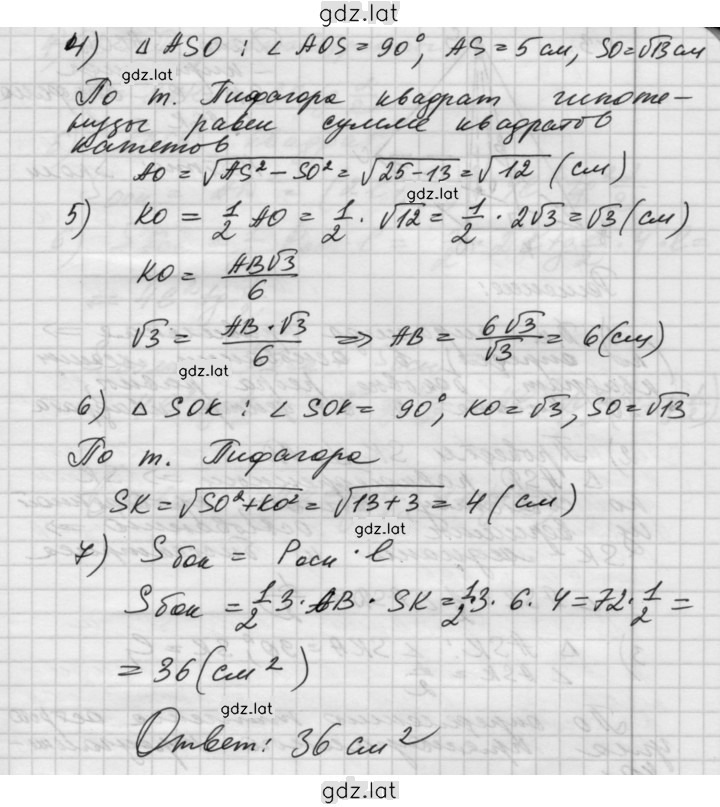 gdz.lat
4) Δ ASO : ∠ AOS = 90°, AS = 5 см, SO = √13 см
gdz.lat
По т. Пифагора квадрат гипоте-
нузы равен сумме квадратов
катетов
AO = √AS² − SO² = √25 − 13 = √12 (см)
gdz.lat
5) KO = 1/2 AO = 1/2 · √12 = 1/2 · 2√3 = √3 (см)
KO = AB√3/6
√3 = AB · √3/6 ⇒ AB = 6√3/√3 = 6 (см)
gdz.lat
6) Δ SOK : ∠ SOK = 90°, KO = √3, SO = √13
По т. Пифагора
SK = √SO² + KO² = √13 + 3 = 4 (см)
gdz.lat
7) Sбок = Pосн · l
Sбок = 1/2 3 · AB · SK = 1/2 · 3 · 6 · 4 = 72 · 1/2 =
= 36 (см²)
gdz.lat
Ответ: 36 см²
gdz.lat